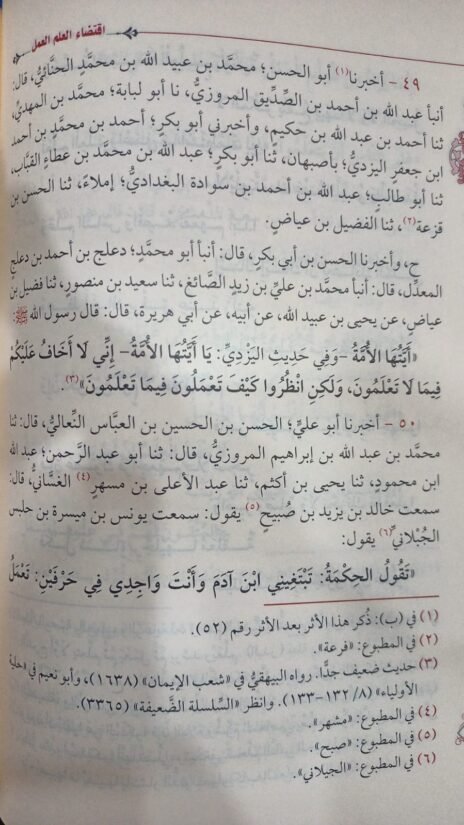 اقتضاء العلم العمل
٤٩ - أخبرنا(١) أبو الحسن؛ محمَّد بن عبيد الله بن محمَّدٍ الحنَّائيُّ، قال:
أنبأ عبد الله بن أحمد بن الصِّدِّيق المروزيُّ، نا أبو لبابة؛ محمَّد بن المهديّ،
ثنا أحمد بن عبد الله بن حكيمٍ، وأخبرني أبو بكرٍ؛ أحمد بن محمَّدِ بن أحمد
ابن جعفرٍ اليزديُّ؛ بأصبهان، ثنا أبو بكرٍ؛ عبد الله بن محمَّد بن عطاءٍ القبَّاب،
ثنا أبو طالبٍ؛ عبد الله بن أحمد بن سوادة البغداديُّ؛ إملاءً، ثنا الحسن بن
قزعة(٢)، ثنا الفضيل بن عياضٍ.
ح، وأخبرنا الحسن بن أبي بكرٍ، قال: أنبأ أبو محمَّدٍ؛ دعلج بن أحمد بن دعلجٍ
المعدِّل، قال: أنبأ محمَّد بن عليِّ بن زيدٍ الصَّائغ، ثنا سعيد بن منصورٍ، ثنا فضيل بن
عياضٍ، عن يحيى بن عبيد الله، عن أبيه، عن أبي هريرة، قال: قال رسول الله ﷺ:
«أَيَّتُهَا الأُمَّةُ -وَفِي حَدِيثِ اليَزْدِيِّ: يَا أَيَّتُهَا الأُمَّةُ- إِنِّي لَا أَخَافُ عَلَيْكُمْ
فِيمَا لَا تَعْلَمُونَ، وَلَكِنِ انْظُرُوا كَيْفَ تَعْمَلُونَ فِيمَا تَعْلَمُونَ»(٣).
٥٠ - أخبرنا أبو عليٍّ؛ الحسن بن الحسين بن العبَّاس النِّعاليُّ، قال: ثنا
محمَّد بن عبد الله بن إبراهيم المروزيُّ، قال: ثنا أبو عبد الرَّحمن؛ عبد الله
ابن محمودٍ، ثنا يحيى بن أكثم، ثنا عبد الأعلى بن مسهرٍ(٤) الغسَّانيُّ، قال:
سمعت خالد بن يزيد بن صُبيحٍ(٥) يقول: سمعت يونس بن ميسرة بن حلبس
الجُبْلانيَّ(٦) يقول:
«تَقُولُ الحِكْمَةُ: تَبْتَغِينِي ابْنَ آدَمَ وَأَنْتَ وَاجِدِي فِي حَرْفَيْنِ: تَعْمَلُ
(١) في (ب): ذُكر هذا الأثر بعد الأثر رقم (٥٢).
(٢) في المطبوع: «فرعة».
(٣) حديث ضعيف جدًّا. رواه البيهقيُّ في «شعب الإيمان» (١٦٣٨)، وأبو نعيم في «حلية
الأولياء» (٨/ ١٣٢-١٣٣). وانظر «السِّلسلة الضَّعيفة» (٣٣٦٥).
(٤) في المطبوع: «مشهر».
(٥) في المطبوع: «صبيح».
(٦) في المطبوع: «الجيلاني».